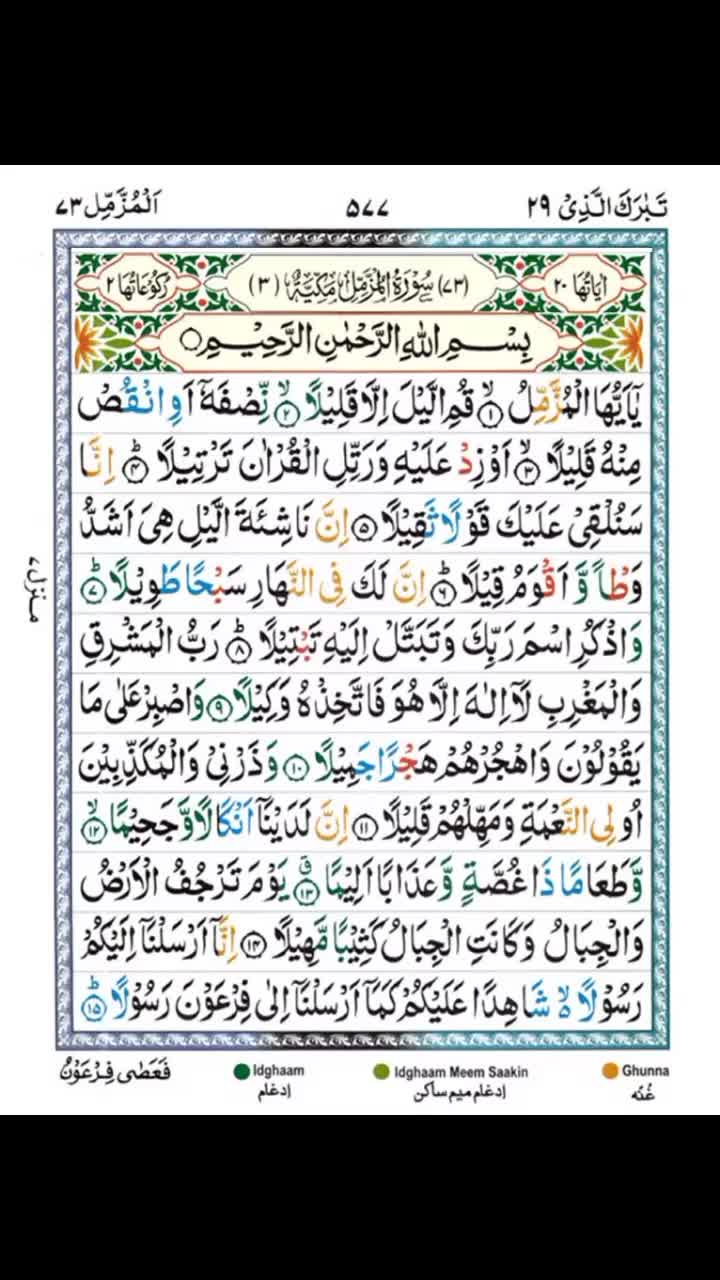 تَبٰرَكَ الَّذِیْ ۲۹
۵۷۷
اَلْمُزَّمِّل ۷۳
اٰیَاتُهَا ۲۰
(۷۳) سُوْرَةُ الْمُزَّمِّلِ مَكِّیَّةٌ (۳)
رُكُوْعَاتُهَا ۲
بِسْمِ اللّٰهِ الرَّحْمٰنِ الرَّحِیْمِ
یٰۤاَیُّهَا الْمُزَّمِّلُ ۙ﴿۱﴾ قُمِ الَّیْلَ اِلَّا قَلِیْلًا ۙ﴿۲﴾ نِّصْفَهٗۤ اَوِ انْقُصْ
مِنْهُ قَلِیْلًا ۙ﴿۳﴾ اَوْ زِدْ عَلَیْهِ وَرَتِّلِ الْقُرْاٰنَ تَرْتِیْلًا ؕ﴿۴﴾ اِنَّا
سَنُلْقِیْ عَلَیْكَ قَوْلًا ثَقِیْلًا ﴿۵﴾ اِنَّ نَاشِئَةَ الَّیْلِ هِیَ اَشَدُّ
وَطْاً وَّ اَقْوَمُ قِیْلًا ؕ﴿۶﴾ اِنَّ لَكَ فِی النَّهَارِ سَبْحًا طَوِیْلًا ؕ﴿۷﴾
وَاذْكُرِ اسْمَ رَبِّكَ وَتَبَتَّلْ اِلَیْهِ تَبْتِیْلًا ؕ﴿۸﴾ رَبُّ الْمَشْرِقِ
وَالْمَغْرِبِ لَاۤ اِلٰهَ اِلَّا هُوَ فَاتَّخِذْهُ وَكِیْلًا ﴿۹﴾ وَاصْبِرْ عَلٰی مَا
یَقُوْلُوْنَ وَاهْجُرْهُمْ هَجْرًا جَمِیْلًا ﴿۱۰﴾ وَذَرْنِیْ وَالْمُكَذِّبِیْنَ
اُولِی النَّعْمَةِ وَمَهِّلْهُمْ قَلِیْلًا ﴿۱۱﴾ اِنَّ لَدَیْنَاۤ اَنْكَالًا وَّجَحِیْمًا ۙ﴿۱۲﴾
وَّطَعَامًا ذَا غُصَّةٍ وَّعَذَابًا اَلِیْمًا ۗ﴿۱۳﴾ یَوْمَ تَرْجُفُ الْاَرْضُ
وَالْجِبَالُ وَكَانَتِ الْجِبَالُ كَثِیْبًا مَّهِیْلًا ﴿۱۴﴾ اِنَّاۤ اَرْسَلْنَاۤ اِلَیْكُمْ
رَسُوْلًا ۙ۬ شَاهِدًا عَلَیْكُمْ كَمَاۤ اَرْسَلْنَاۤ اِلٰی فِرْعَوْنَ رَسُوْلًا ؕ﴿۱۵﴾
منزل ۷
فَعَصٰی فِرْعَوْنُ
Idghaam
اِدغام
Idghaam Meem Saakin
اِدغام میم ساکن
Ghunna
غُنّه